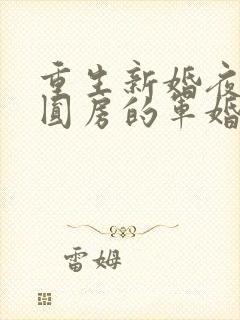 重生新婚夜
圆房的军婚
雷姆